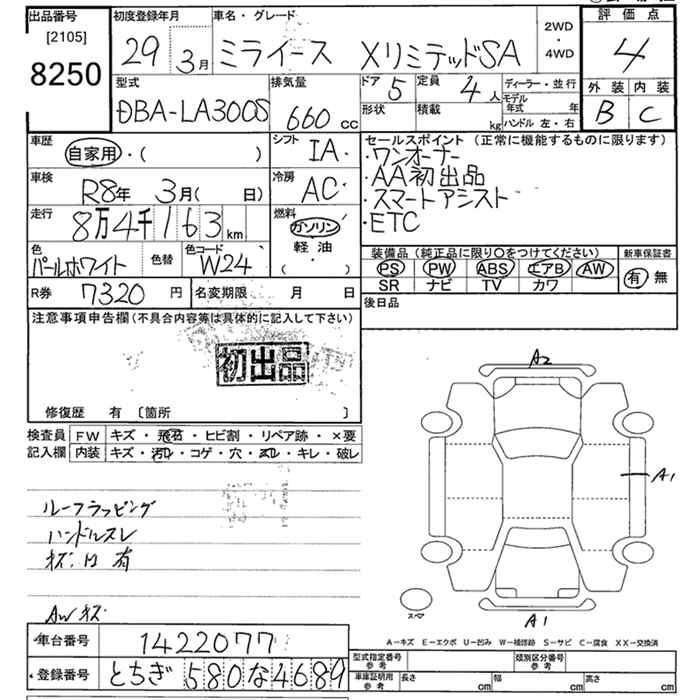 出品番号
[2105]
8250
初度登録年月
29 3月
車名・グレード
ミライース XリミテッドSA
2WD
・
4WD
評価点
4
外装 内装
B C
型式
DBA-LA300S
排気量
660 cc
ドア 5
定員 4人
形状
積載 kg
ディーラー・並行
モデル年式 年
ハンドル 左・右
車歴
自家用・( )
シフト
IA
車検
R8年 3月( 日)
冷房
AC
走行
8万4千163km
燃料
ガソリン
軽油
( )
色
パールホワイト
色替
色コード
W24
R券 7320円
名変期限 月 日
セールスポイント (正常に機能するものに限ります)
・ワンオーナー
・AA初出品
・スマートアシスト
・ETC
装備品(純正品に限り○をつけてください)
PS PW ABS エアB AW
SR ナビ TV カワ
新車保証書
有 無
後日品
注意事項申告欄(不具合内容等は具体的に記入して下さい)
初出品
修復歴 有 〔箇所 〕
検査員記入欄
FW キズ・飛石・ヒビ割・リペア跡・×要
内装 キズ・汚れ・コゲ・穴・スレ・キレ・破レ
ルーフラッピング
ハンドルスレ
有
AWキズ
A2
A1
A1
スペア
A-キズ E-エクボ U-凹み W-補修跡 S-サビ C-腐食 XX-交換済
車台番号 1422077
登録番号 とちぎ 580 な 4689
型式指定番号 参考
類別区分番号 参考
車庫証明用 参考
長さ cm 幅 cm 高さ cm